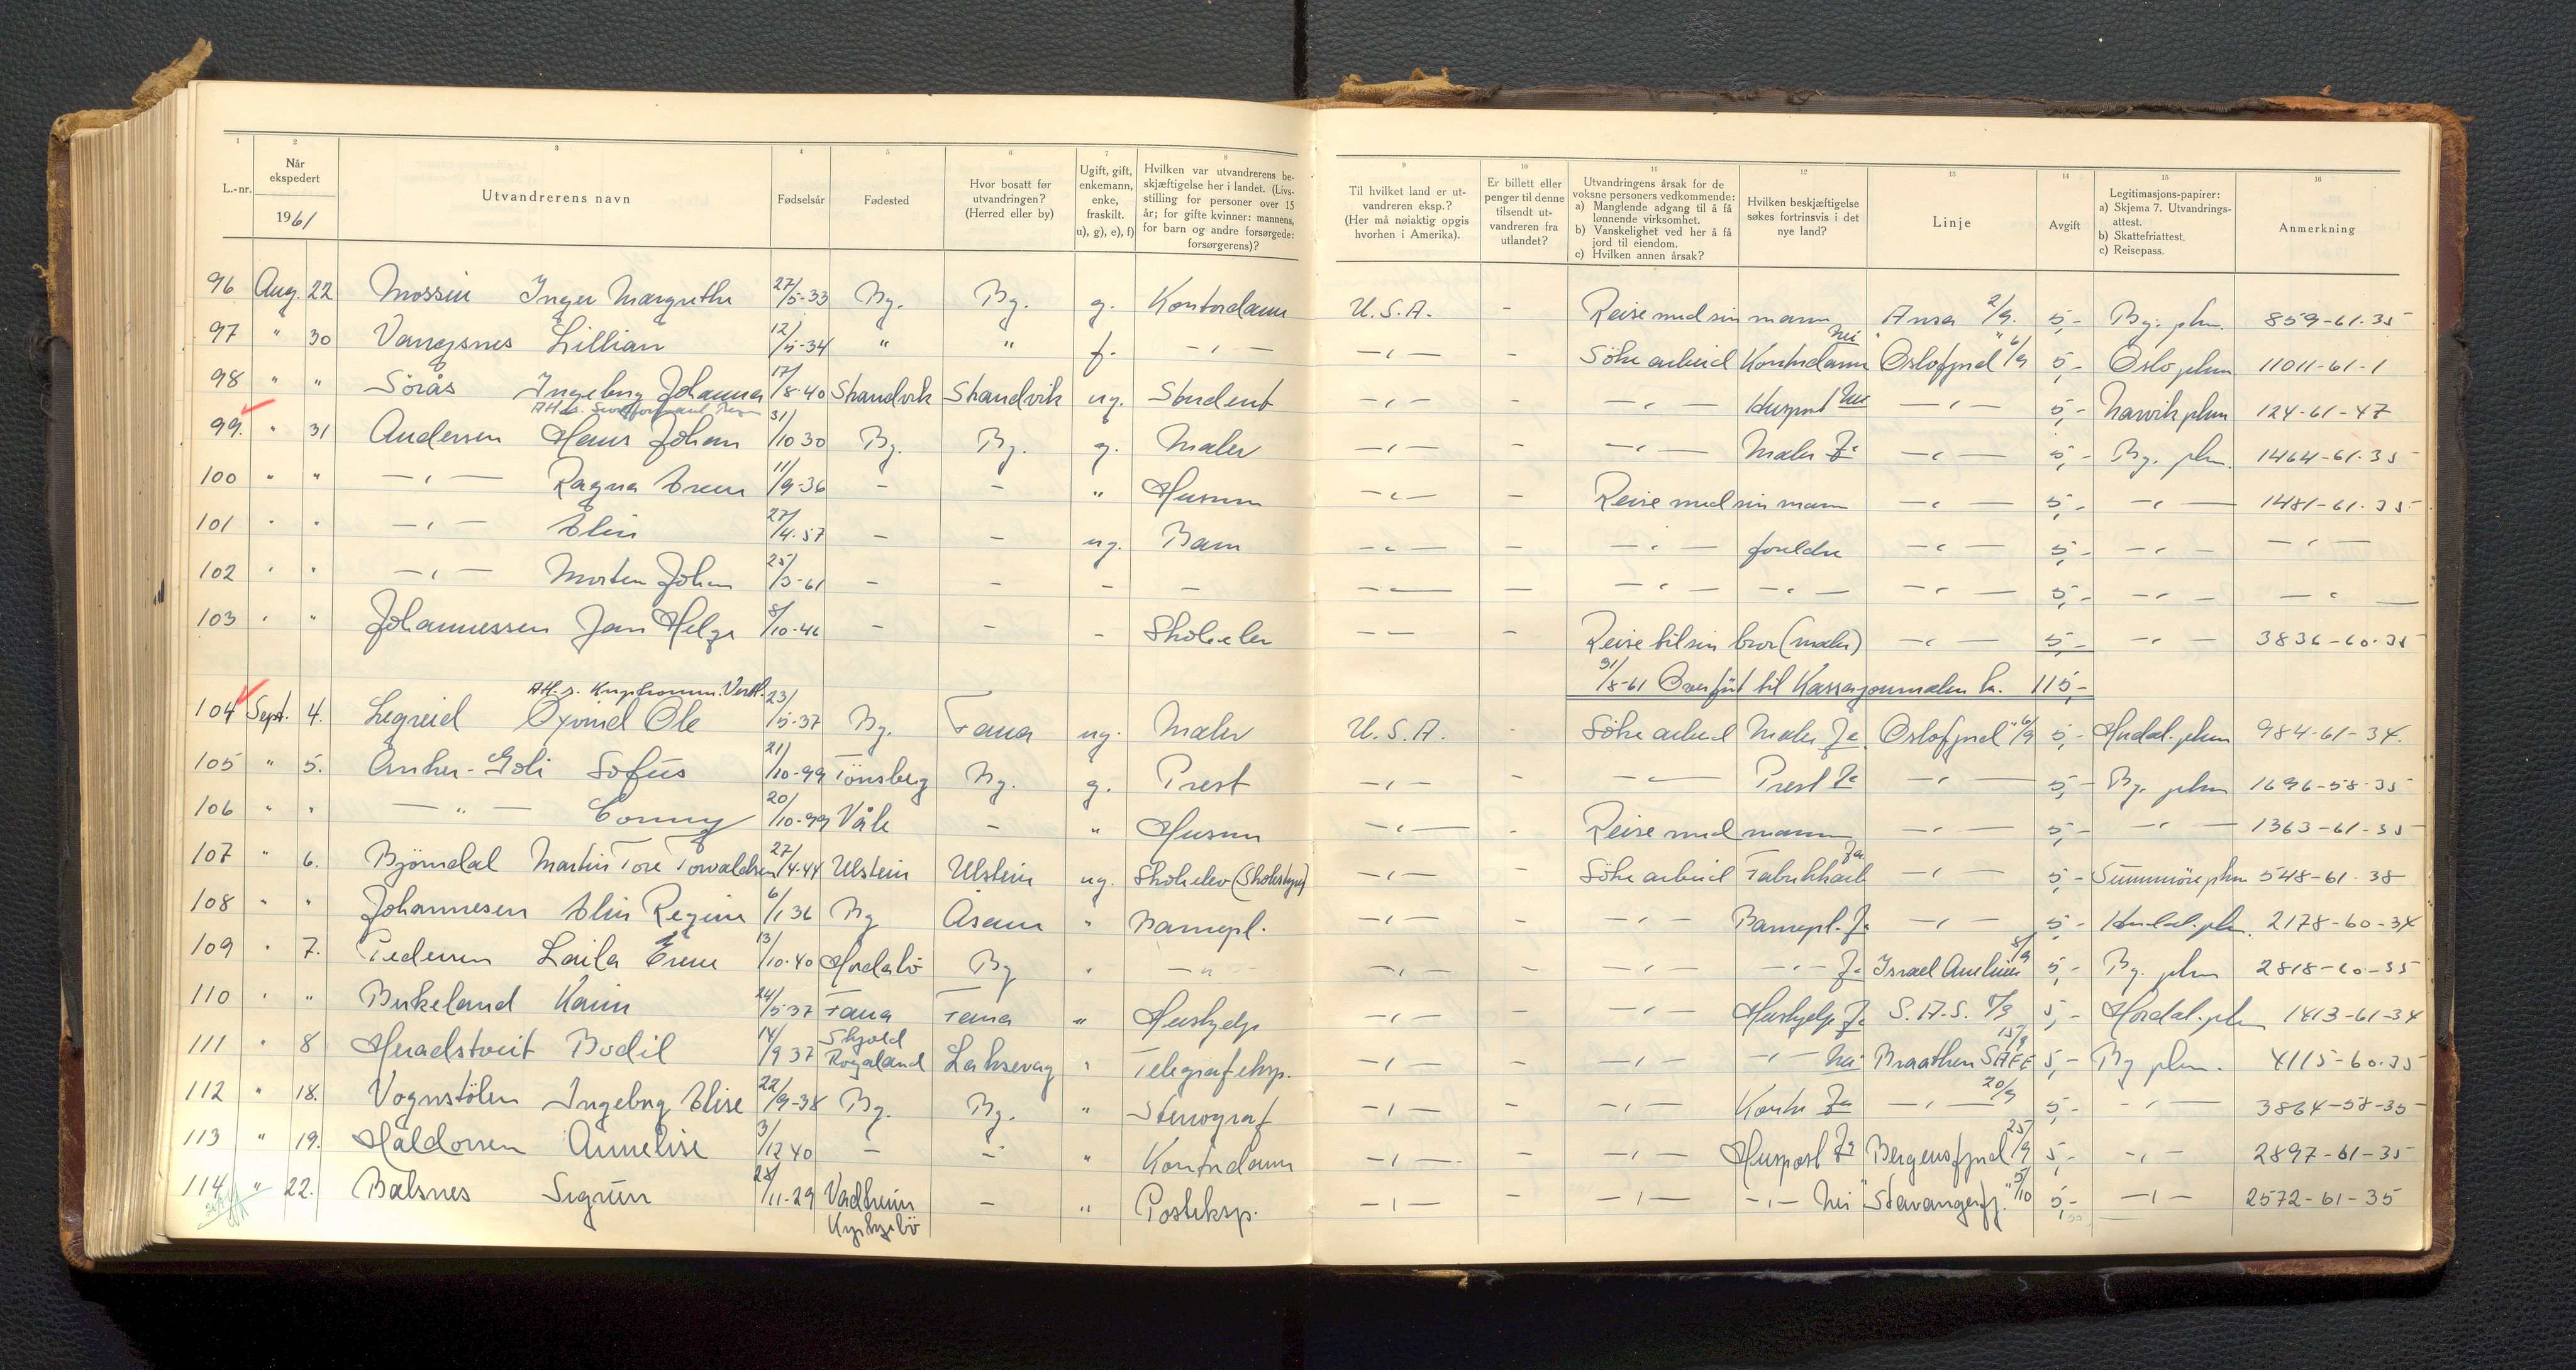 1 2 3 4 5 6 7 8 9 10 11 12 13 14 15 16
L.-nr.
Når ekspedert
1961
Utvandrerens navn
Fødselsår
Fødested
Hvor bosatt før utvandringen? (Herred eller by)
Ugift, gift, enkemann, enke, fraskilt. u), g), e), f)
Hvilken var utvandrerens beskjæftigelse her i landet. (Livsstilling for personer over 15 år; for gifte kvinner: mannens, for barn og andre forsørgede: forsørgerens)?
Til hvilket land er utvandreren eksp.? (Her må nøiaktig opgis hvorhen i Amerika).
Er billett eller penger til denne tilsendt utvandreren fra utlandet?
Utvandringens årsak for de voksne personers vedkommende:
a) Manglende adgang til å få lønnende virksomhet.
b) Vanskelighet ved her å få jord til eiendom.
c) Hvilken annen årsak?
Hvilken beskjæftigelse søkes fortrinsvis i det nye land?
Linje
Avgift
Legitimasjons-papirer:
a) Skjema 7. Utvandringsattest.
b) Skattefriattest.
c) Reisepass.
Anmerkning
96 Aug. 22 Mossin Inger Margrethe 27/5-33 Bg. Bg. g. Kontordame U.S.A. - Reise med sin mann Ansa 2/9. 5,- Bg. pkm. 859-61-35
97 " 30 Vangsnes Lillian 12/5-34 " " f. -"- -"- - Söke arbeid Kontordame Nei "Oslofjord" 6/9 5,- Oslo pkm 11011-61-1
98 " " Sörås Ingeborg Johanna 17/8-40 Strandvik Strandvik ug. Student -"- - -"- Huspost Nei -"- 5,- Narvik pkm 124-61-47
99. " 31 Andersen Hans Johan 31/10 30 Bg. Bg. g. Maler -"- - -"- Maler Ja -"- 5,- Bg. pkm. 1464-61-35
100 " " -"- Ragna Irene 11/9-36 - - " Husmor -"- - Reise med sin mann -"- 5,- -"- 1481-61-35
101 " " -"- Elin 27/4-57 - - ug. Barn -"- - -"- foreldre -"- 5,- -"- -"-
102 " " -"- Morten Johan 25/3-61 - - - - -"- - -"- -"- -"- 5,- -"- -"-
103 " " Johannessen Jan Helge 8/10-46 - - - Skoleelev -"- - Reise til sin bror (maler) -"- 5,- -"- 3836-60-35
31/8-61 Overført til Kassajournalen kr. 115,-
104 Sept. 4. Legreid Öyvind Ole 23/5-37 Bg. Fana ug. Maler U.S.A. - Söke arbeid Maler Ja "Oslofjord" 6/9 5,- Hordal. pkm 984-61-34.
105 " 5. Anker-Goli Sofus 21/10-99 Tönsberg Bg. g. Prest -"- - -"- Prest Ja -"- 5,- Bg. pkm 1696-58-35
106 " " -"- Conny 20/10-99 Våle - " Husmor -"- - Reise med mann -"- 5,- -"- 1363-61-35
107 " 6. Björndal Martin Tore Torvaldsen 27/4-44 Ulstein Ulstein ug. Skoleelev -"- - Söke arbeid Fabrikkarb Ja -"- 5,- Sunnmöre pkm 548-61-38
108 " " Johannesen Elin Regine 6/1 36 Bg Åsane " Barnepl. -"- - -"- Barnepl. Ja -"- 5,- Hordal. pkm. 2178-60-34
109 " 7. Pedersen Laila Irene 13/10-40 Hordabö Bg " -"- -"- - -"- -"- Ja Israel Amerlinie 8/9 5,- Bg. pkm 2818-60-35
110 " " Birkeland Karin 24/5-37 Fana Fana " Hushjelp -"- - -"- Hushjelp Ja S.A.S. 8/9 5,- Hordal. pkm 1413-61-34
111 " 8 Heradstveit Bodil 14/9 37 Skjold Rogaland Laksevåg " Telegrafeksp. -"- - -"- -"- Nei Braathen SAFE 15/9 5,- Bg pkm. 4115-60-35
112 " 18. Vognstölen Ingeborg Elise 22/9-38 Bg. Bg. " Stenograf -"- - -"- Kontor Ja -"- 20/9 5,- -"- 3864-58-35
113 " 19. Haldorsen Annelise 3/12 40 - - " Kontordame -"- - -"- Huspost Ja Bergensfjord 25/9 5,- -"- 2897-61-35
114 " 22. Balsnes Sigrun 28/11-29 Vadheim Kyrkjebö - " Posteksp. -"- - -"- -"- Nei "Stavangerfj." 3/10 5,- -"- 2572-61-35